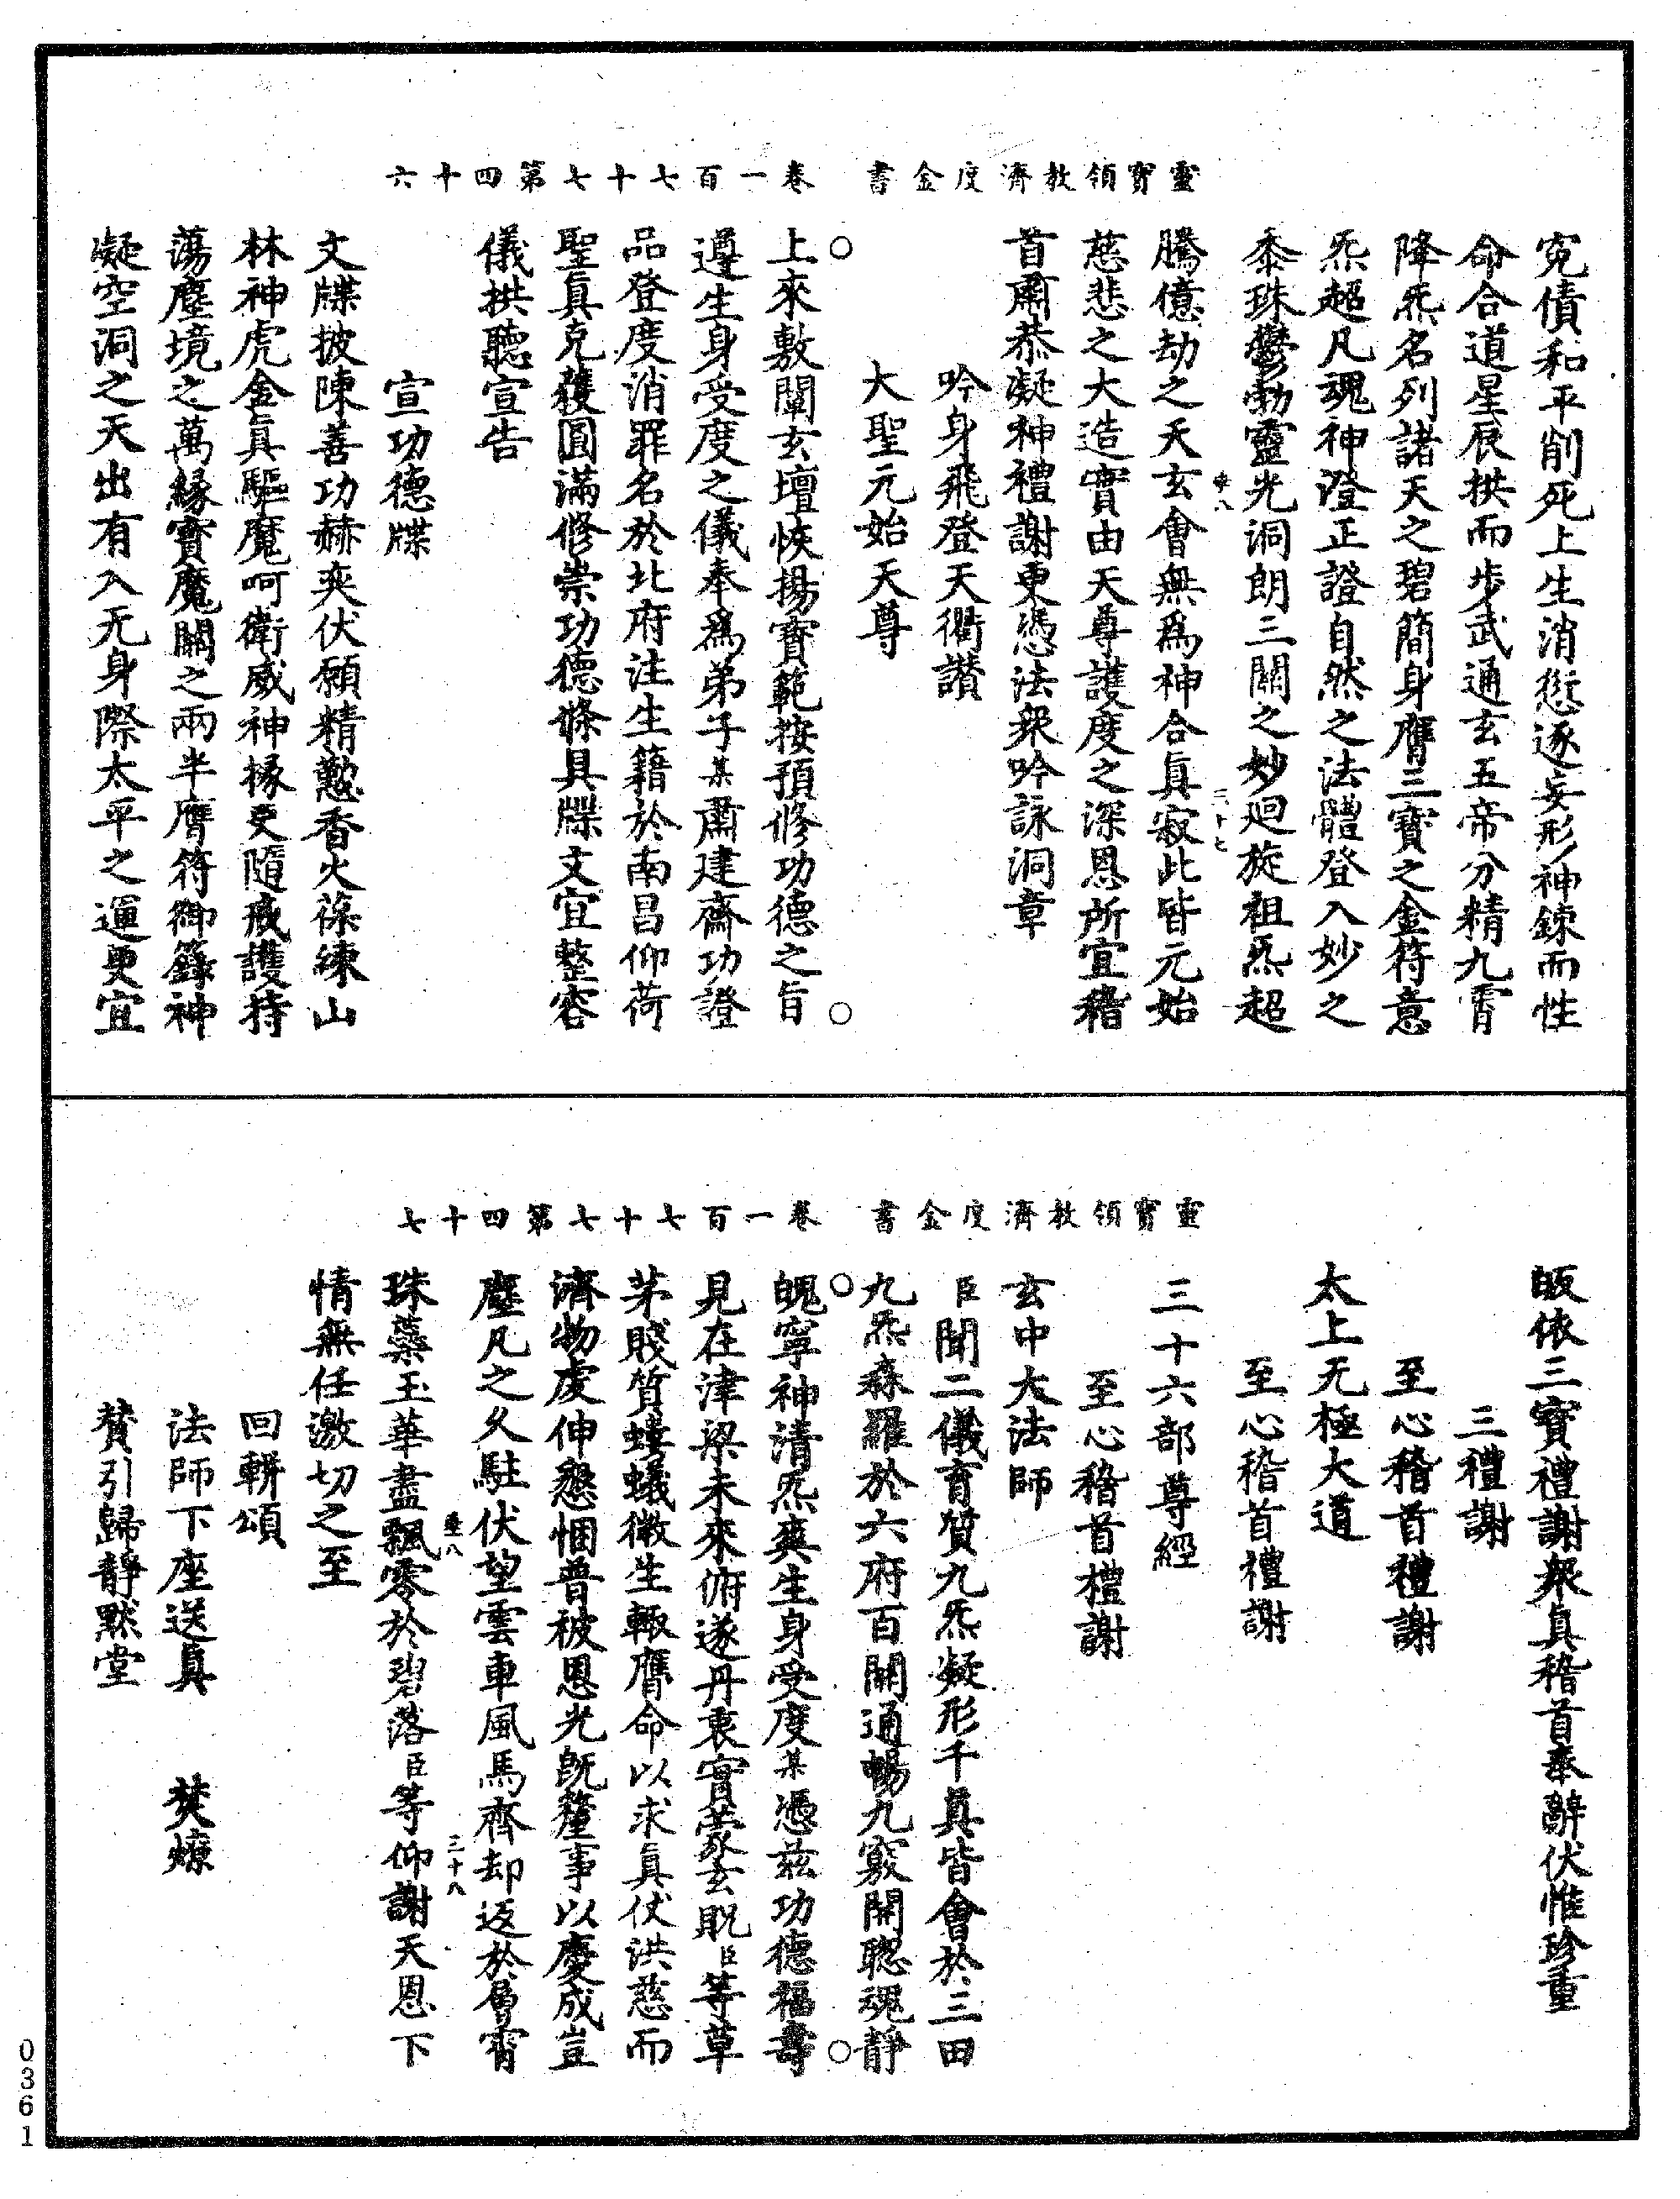 靈寶領教濟度金書　卷一百七十七第四十六
冤債和平削死上生消愆逐妄形神鍊而性
命合道星辰拱而步武通玄五帝分精九霄
降炁名列諸天之碧簡身膺三寶之金符意
炁超凡魂神澄正證自然之法體登入妙之
黍珠鬱勃靈光洞朗三關之妙廻旋祖炁超
騰億劫之天玄會無為神合真寂此皆元始
慈悲之大造實由天尊護度之深恩所宜稽
首肅恭凝神禮謝更憑法衆吟詠洞章
吟身飛登天衢讚
大聖元始天尊
上來敷闡玄壇恢揚寶範按預修功德之旨
遵生身受度之儀奉為弟子某肅建齋功證
品登度消罪名於北府注生籍於南昌仰荷
聖真克穫圓滿修崇功德條具牒文宜整容
儀拱聽宣告
宣功德牒
文牒披陳善功赫奕伏願精懃香火葆練山
林神虎金真驅魔呵衛威神掾吏隨戒護持
蕩塵境之萬緣賓魔關之兩半膺符御籙神
凝空洞之天出有入无身際太平之運更宜
靈寶領教濟度金書　卷一百七十七第四十七
皈依三寶禮謝衆真稽首奉辭伏惟珍重
三禮謝
至心稽首禮謝
太上无極大道
至心稽首禮謝
三十六部尊經
至心稽首禮謝
玄中大法師
臣聞二儀育質九炁凝形千真皆會於三田
九炁森羅於六府百關通暢九竅開聰魂靜
魄寧神清炁爽生身受度某憑茲功德福壽
見在津梁未來俯遂丹衷實蒙玄貺臣等草
茅賤質螻蟻微生輒膺命以求真仗洪慈而
濟物虔伸懇悃普被恩光旣釐事以慶成豈
塵凡之久駐伏望雲車風馬齊却返於層霄
珠蘂玉華盡飄零於碧落臣等仰謝天恩下
情無任激切之至
回軿頌
法師下座送真　焚燎
贊引歸靜默堂
0361